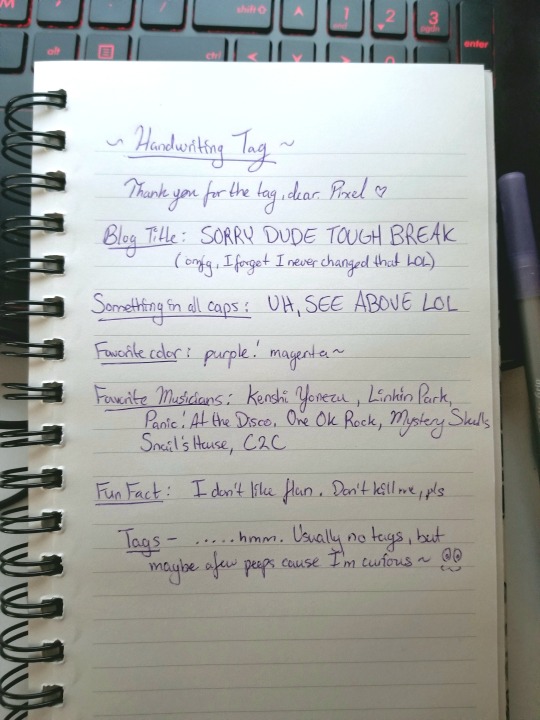 shift
1
end
2
3
pgdn
enter
alt
ctrl
~ Handwriting Tag ~
Thank you for the tag, dear Pixel ♡
Blog Title: SORRY DUDE TOUGH BREAK
(omfg, I forget I never changed that LOL)
Something in all caps: UH, SEE ABOVE LOL
Favorite color: purple! magenta~
Favorite Musicians: Kenshi Yonezu, Linkin Park,
Panic! At the Disco, One Ok Rock, Mystery Skulls
Snail's House, C2C
Fun Fact: I don't like flan. Don't kill me, pls
Tags - .....hmm. Usually no tags, but
maybe a few peeps cause I'm curious ~